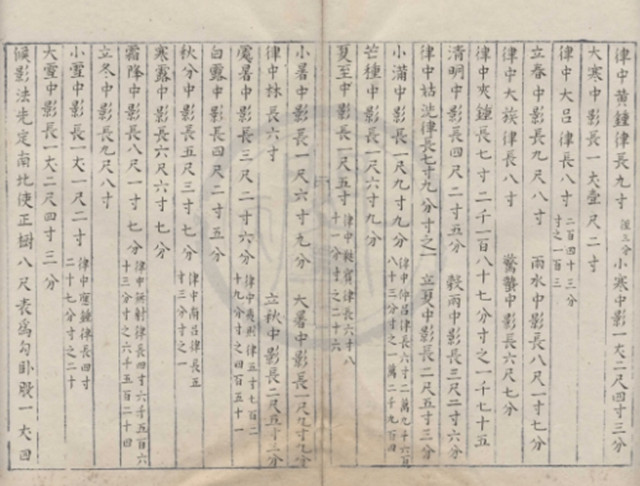 律中黃鍾律長九寸徑三分小寒中影一丈二尺四寸三分
大寒中影長一丈壹尺二寸
律中大呂律長八寸二百四十三分寸之一百三
立春中影長九尺八寸 雨水中影長八尺一寸七分
律中大族律長八寸 驚蟄中影長六尺七分
律中夾鍾長七寸二千一百八十七分寸之一千七十五
清明中影長四尺二寸五分 穀雨中影長三尺二寸六分
律中姑洗律長七寸九分寸之一 立夏中影長二尺五寸三分
小滿中影長一尺九寸九分律中仲呂律長六寸二萬九千六百八十三分寸之一萬二千九百四
芒種中影長一尺六寸九分
夏至中影長一尺五寸律中蕤賓律長六寸八十一分寸之二十六
小暑中影長一尺六寸九分 大暑中影長一尺九寸九分
律中林長六寸 立秋中影長二尺五寸二分
處暑中影長三尺二寸六分律中夷則律五寸七百二十九分寸之四百五十一
白露中影長四尺二寸五分
秋分中影長五尺三寸七分律中南呂律長五寸三分寸之一
寒露中影長六尺六寸七分
霜降中影長八尺一寸七分律中無射律長四寸六千五百六十三分寸之六千五百二十四
立冬中影長九尺八寸
小雪中影長一丈一尺二寸律中應鍾律長四寸二十七分寸之二十
大雪中影長一丈二尺四寸三分
候影法先定南北使正樹八尺表為勾卧股一丈四